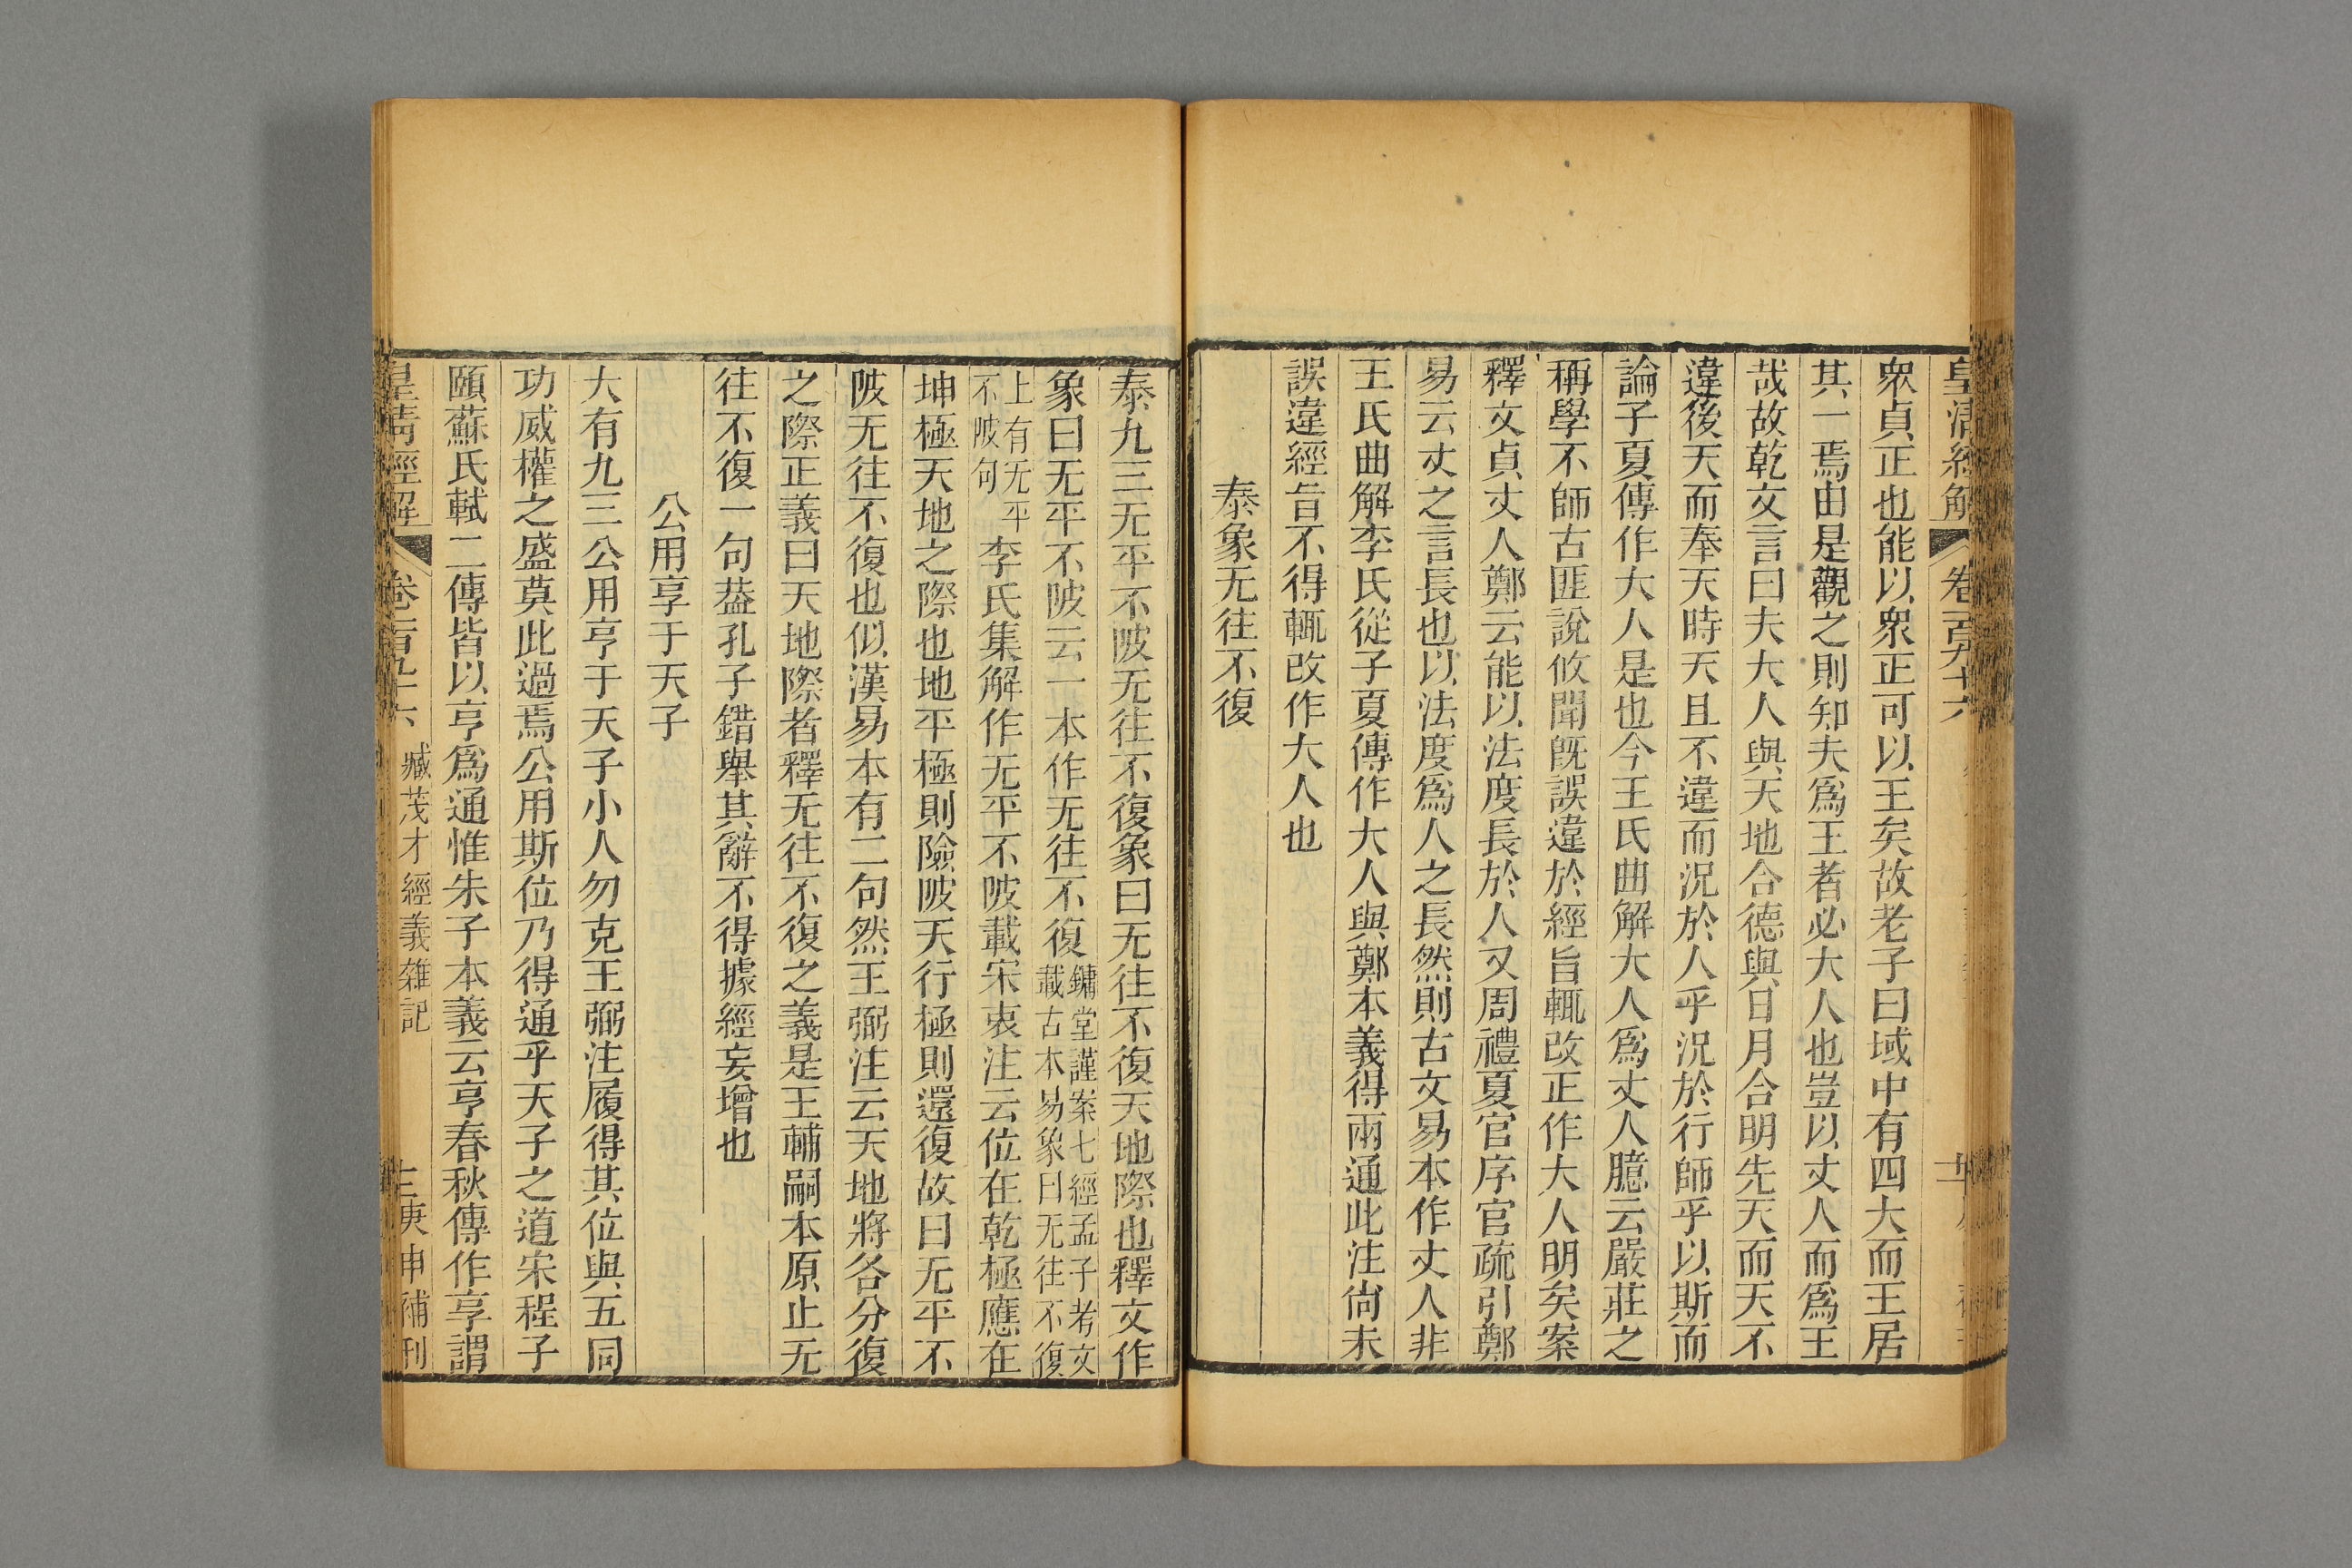 皇清經解 卷一百九十六
眾貞正也能以眾正可以王矣故老子曰域中有四大而王居
其一焉由是觀之則知夫爲王者必大人也豈以丈人而爲王
哉故乾文言曰夫大人與天地合德與日月合明先天而天不
違後天而奉天時天且不違而況於人乎況於行師乎以斯而
論子夏傳作大人是也今王氏曲解大人爲丈人臆云嚴莊之
稱學不師古匪說攸聞旣誤違於經旨輒改正作大人明矣案
釋文貞丈人鄭云能以法度長於人又周禮夏官序官疏引鄭
易云丈之言長也以法度爲人之長然則古文易本作丈人非
王氏曲解李氏從子夏傳作大人與鄭本義得兩通此注尙未
誤違經旨不得輒改作大人也
泰象无往不復
泰九三无平不陂无往不復象曰无往不復天地際也釋文作
象曰无平不陂云一本作无往不復鏞堂謹案七經孟子考文
載古本易象曰无往不復
上有无平
不陂句李氏集解作无平不陂載宋衷注云位在乾極應在
坤極天地之際也地平極則險陂天行極則還復故曰无平不
陂无往不復也似漢易本有二句然王弼注云天地將各分復
之際正義曰天地際者釋无往不復之義是王輔嗣本原止无
往不復一句葢孔子錯舉其辭不得據經妄增也
公用享于天子
大有九三公用亨于天子小人勿克王弼注履得其位與五同
功威權之盛莫此過焉公用斯位乃得通乎天子之道宋程子
頤蘇氏軾二傳皆以亨爲通惟朱子本義云亨春秋傳作享謂
皇清經解 卷一百九十六 臧茂才經義雜記 庚申補刊